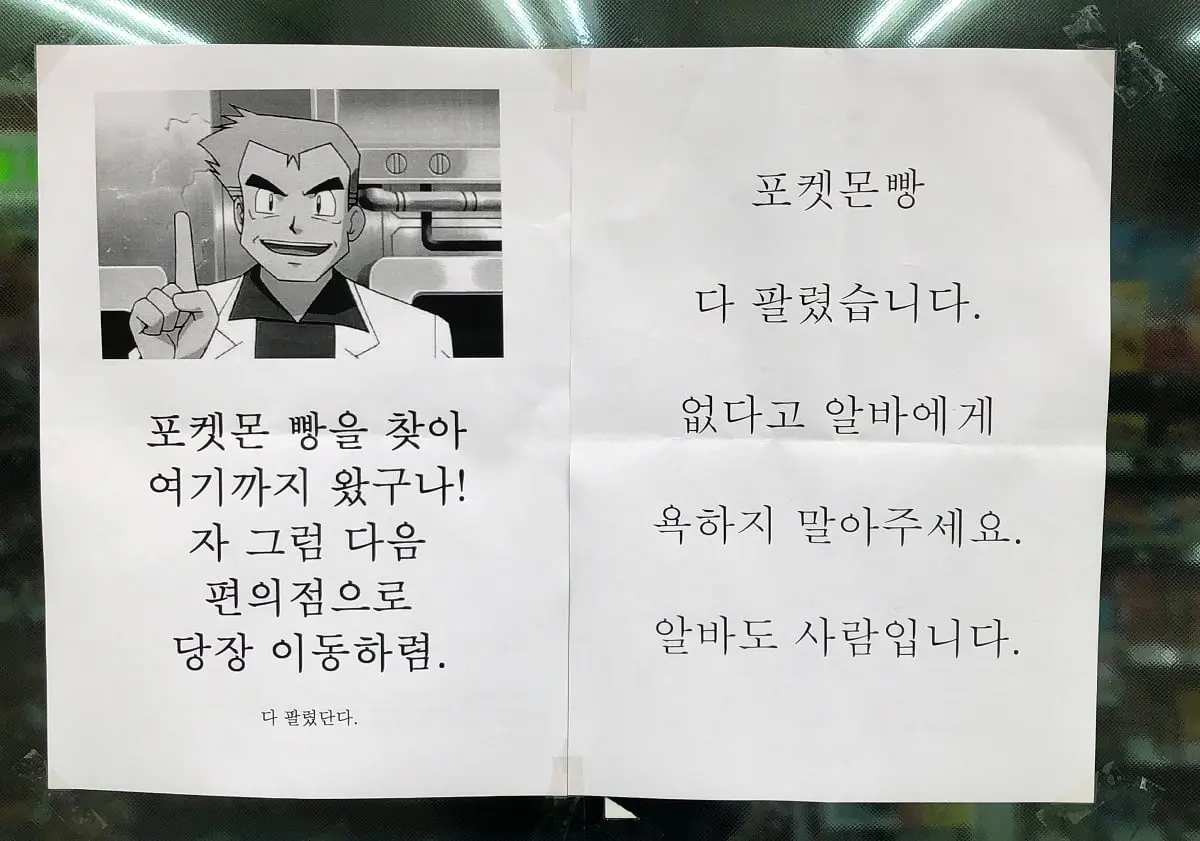 포켓몬 빵을 찾아
여기까지 왔구나!
자 그럼 다음
편의점으로
당장 이동하렴.
다 팔렸단다.
포켓몬빵
다 팔렸습니다.
없다고 알바에게
욕하지 말아주세요.
알바도 사람입니다.